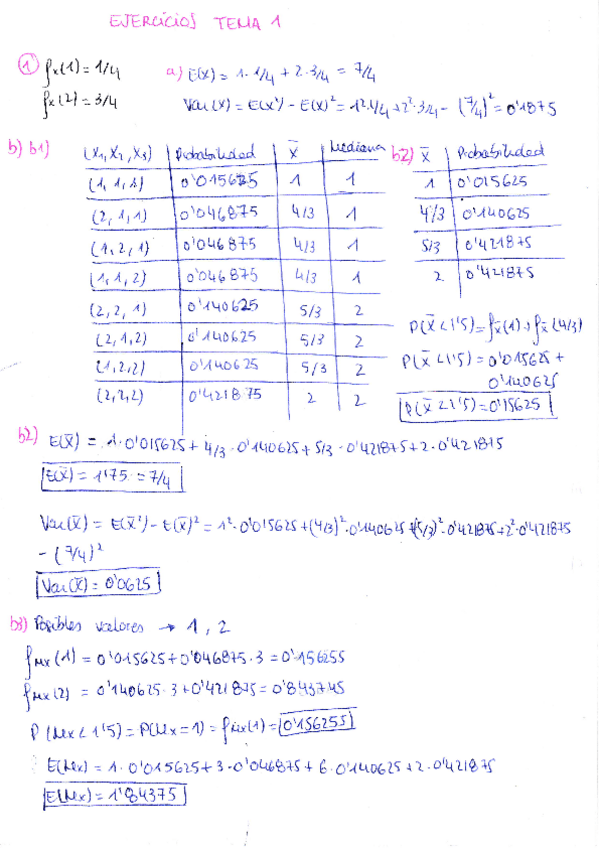 EJERCICIOS TEMA 1
① fx(1) = 1/4
fx(2) = 3/4
a) E(X) = 1·1/4 + 2·3/4 = 7/4
Var(X) = E(X²) - E(X)² = 1²·1/4 + 2²·3/4 - (7/4)² = 0'1875
b) b1)
(X₁, X₂, X₃) Probabilidad X̄ Mediana
(1, 1, 1) 0'015625 1 1
(2, 1, 1) 0'046875 4/3 1
(1, 2, 1) 0'046875 4/3 1
(1, 1, 2) 0'046875 4/3 1
(2, 2, 1) 0'140625 5/3 2
(2, 1, 2) 0'140625 5/3 2
(1, 2, 2) 0'140625 5/3 2
(2, 2, 2) 0'421875 2 2
b2) X̄ Probabilidad
1 0'015625
4/3 0'140625
5/3 0'421875
2 0'421875
P(X̄ < 1'5) = fx̄(1) + fx̄(4/3)
P(X̄ < 1'5) = 0'015625 +
0'140625
P(X̄ < 1'5) = 0'15625
b2) E(X̄) = 1·0'015625 + 4/3·0'140625 + 5/3·0'421875 + 2·0'421875
E(X̄) = 1'75 = 7/4
Var(X̄) = E(X̄²) - E(X̄)² = 1²·0'015625 + (4/3)²·0'140625 + (5/3)²·0'421875 + 2²·0'421875
- (7/4)²
Var(X̄) = 0'0625
b3) Posibles valores → 1, 2
fMx(1) = 0'015625 + 0'046875·3 = 0'156255
fMx(2) = 0'140625·3 + 0'421875 = 0'843745
P(Mx < 1'5) = P(Mx = 1) = fMx(1) = 0'156255
E(Mx) = 1·0'015625 + 3·0'046875 + 6·0'140625 + 2·0'421875
E(Mx) = 1'84375